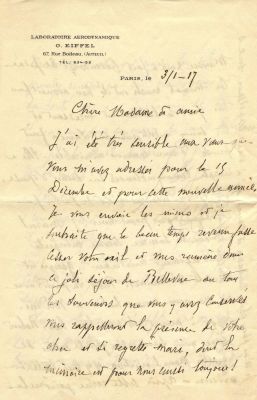 LABORATOIRE AERODYNAMIQUE
G. EIFFEL
67, Rue Boileau. (AUTEUIL)
TÉL.
PARIS, le 3/1-17
Chère Madame & amie
J'ai été très sensible aux vœux que
vous m'avez adressés pour le 15
Décembre et pour cette nouvelle année.
Je vous envoie les miens et je
souhaite que le beau temps revenu fasse
votre exil et vous ramène dans
ce joli séjour de Bellevue où tous
les souvenirs que vous y avez conservés
vous rappelleront la présence de votre
cher et si regretté mari, dont la
mémoire est pour nous toujours!